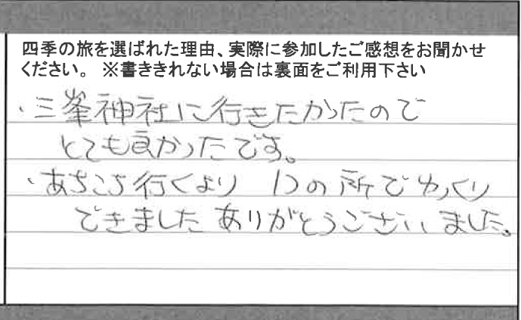 四季の旅を選ばれた理由、実際に参加したご感想をお聞かせ
ください。 ※書ききれない場合は裏面をご利用下さい
・三峯神社に行きたかったので
とても良かったです。
・あちこち行くより 1つの所でゆっくり
できました ありがとうございました。